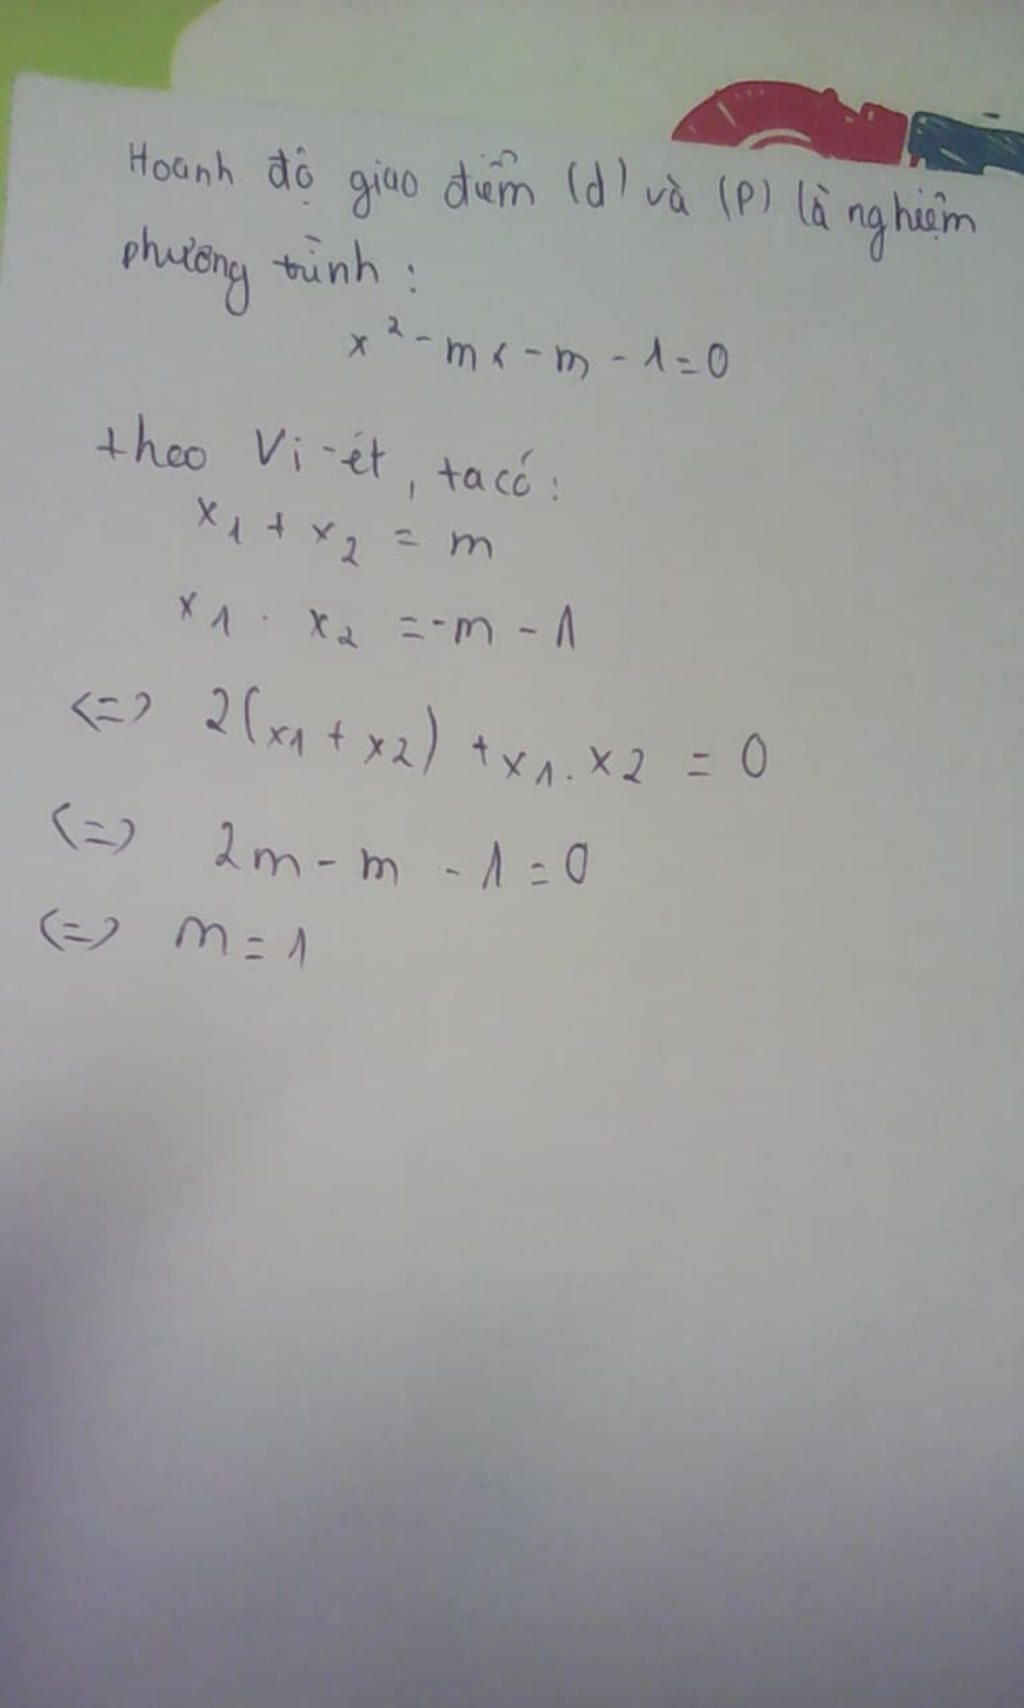 Hoanh độ giao điểm (d) và (P) là nghiệm
phương trình :
x² - mx - m - 1 = 0
theo Vi-ét, ta có :
x₁ + x₂ = m
x₁ . x₂ = -m - 1
<=> 2(x₁ + x₂) + x₁ . x₂ = 0
<=> 2m - m - 1 = 0
<=> m = 1